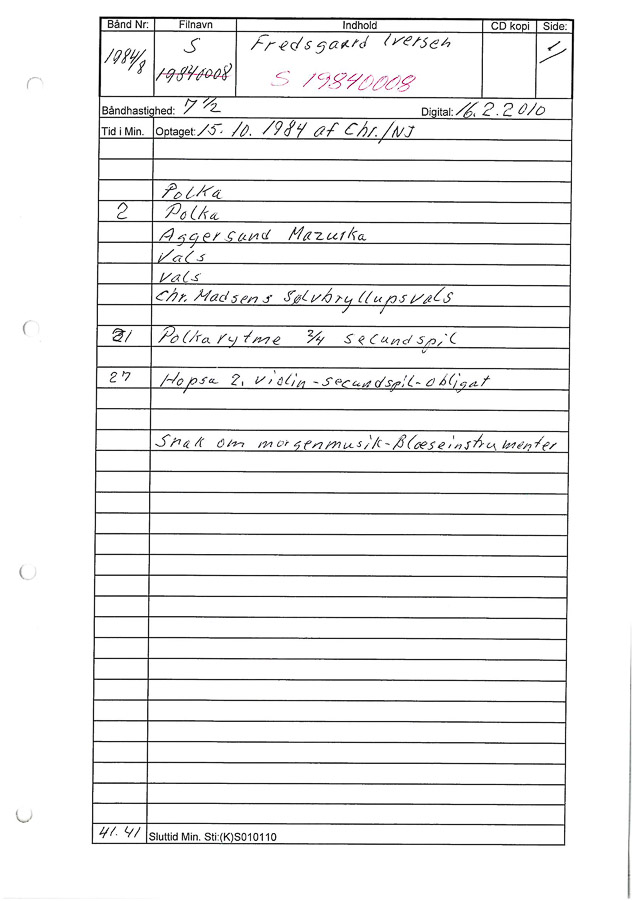 Bånd Nr: Filnavn Indhold CD kopi Side:
1984/8 S Fredsgaard Iversen 1/
19840008 S 19840008
Båndhastighed: 7 1/2 Digital: 16.2.2010
Tid i Min. Optaget: 15.10.1984 af Chr./NJ
Polka
2 Polka
Aggersund Mazurka
Vals
Vals
Chr. Madsens Sølvbryllupsvals
21 Polkarytme 2/4 secundspil
27 Hopsa 2. violin-secundspil-obligat
Snak om morgenmusik-Blæseinstrumenter
41.41 Sluttid Min. Sti:(K)S010110